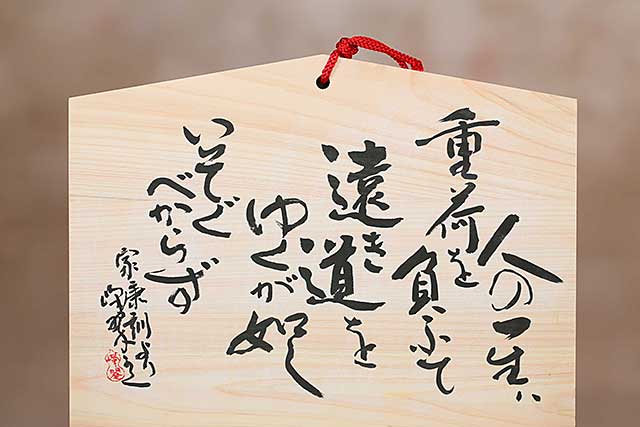 人の一生ハ
重荷を
負ふて
遠き道を
ゆくが如し
いそぐ
べからず
家康訓